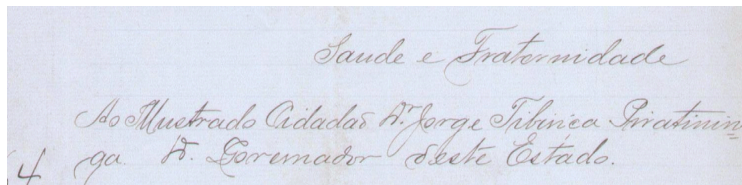 Saude e Fraternidade
Ao Illustrado Cidadaõ Dr. Jorge Tibiriça Piratinin=
ga D. Governador deste Estado.
4